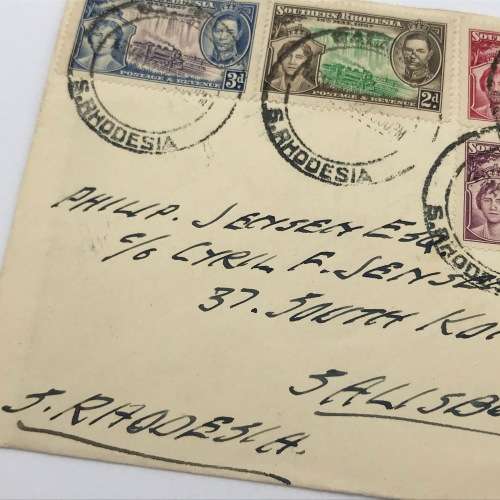 SOUTHERN RHODESIA
POSTAGE & REVENUE 3d
SOUTHERN RHODESIA
POSTAGE & REVENUE 2d
S. RHODESIA
S. RHODESIA
S. RHODE
PHILIP. JENSEN ESQ
c/o CYRIL F. JENSE
37. SOUTH
SALISB
S. RHODESIA.